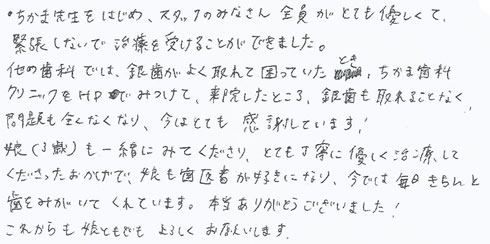 ・ちかま先生をはじめ、スタッフのみなさん全員がとても優しくて、
緊張しないで治療を受けることができました。
他の歯科では、銀歯がよく取れて困っていたとき、ちかま歯科
クリニックをHPでみつけて、来院したところ、銀歯も取れることなく、
問題も全くなくなり、今はとても感謝しています!
娘(3歳)も一緒にみてくださり、とても丁寧に優しく治療して
くださったおかげで、娘も歯医者が好きになり、今では毎日きちんと
歯をみがいてくれています。本当ありがとうございました!
これからも娘ともどもよろしくお願いします。